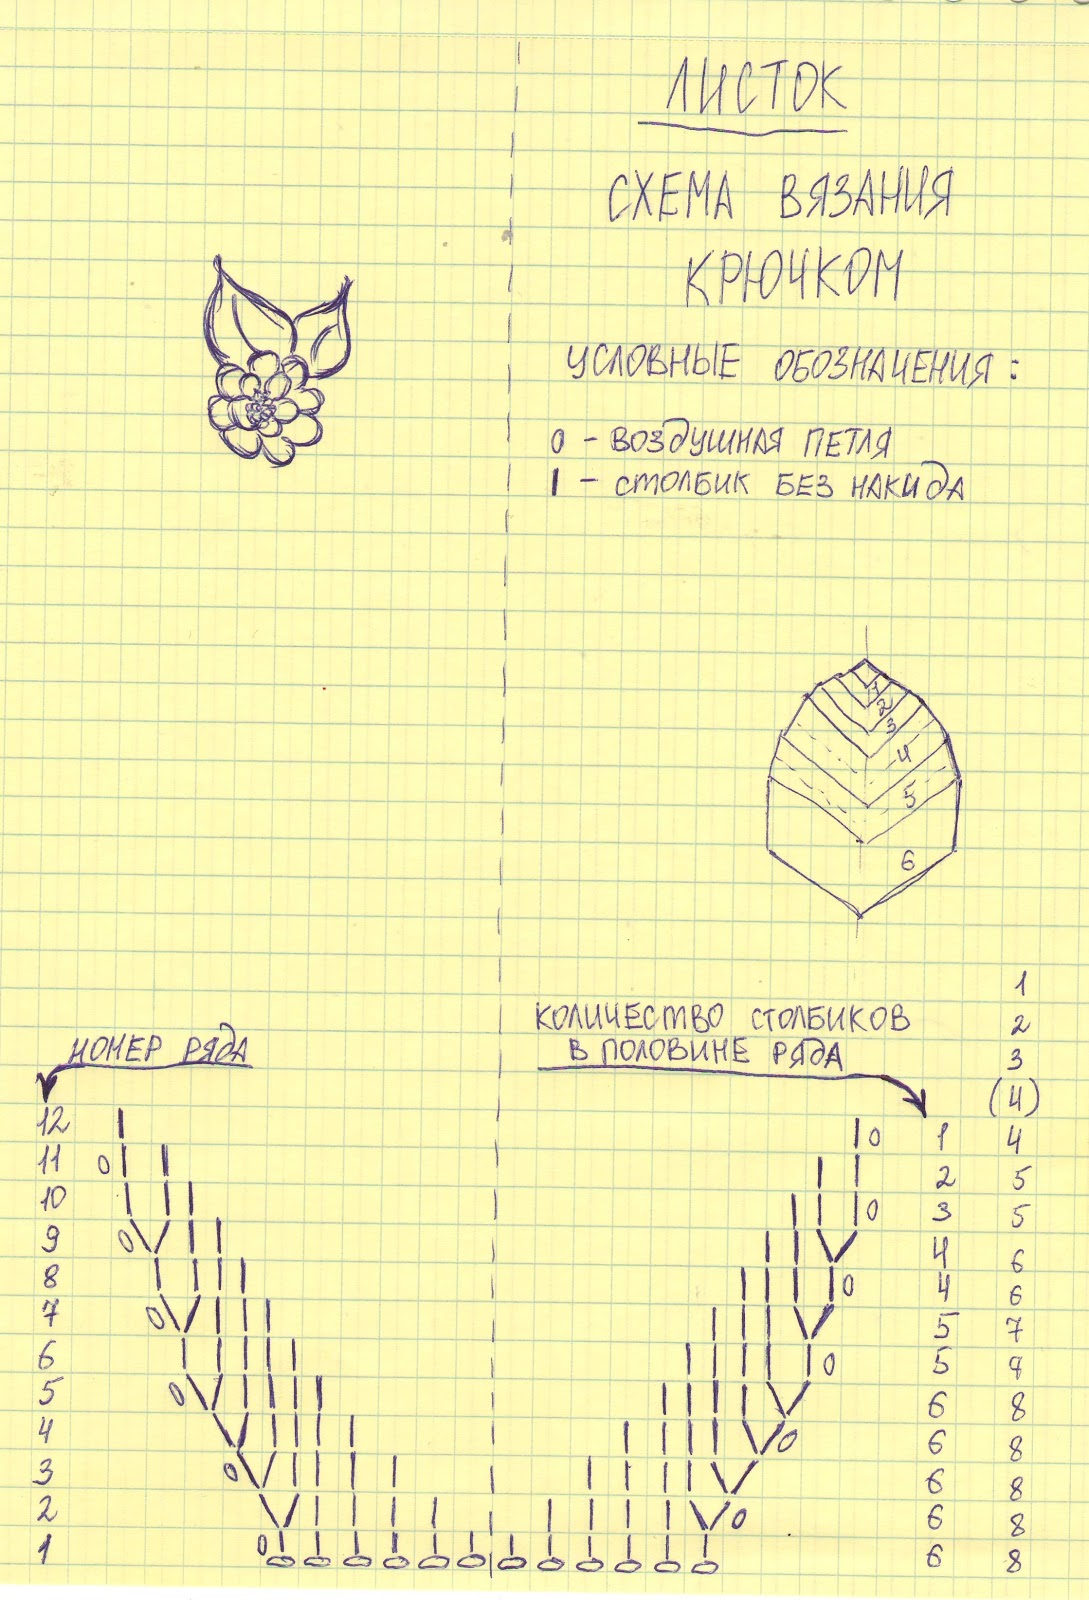 ЛИСТОК
СХЕМА ВЯЗАНИЯ
КРЮЧКОМ
УСЛОВНЫЕ ОБОЗНАЧЕНИЯ:
0 - ВОЗДУШНАЯ ПЕТЛЯ
| - СТОЛБИК БЕЗ НАКИДА
1
2
3
4
5
6
НОМЕР РЯДА
КОЛИЧЕСТВО СТОЛБИКОВ
В ПОЛОВИНЕ РЯДА
1
2
3
(4)
12 1 4
11 2 5
10 3 5
9 4 6
8 4 6
7 5 7
6 5
5 6 8
4 6 8
3 6 8
2 6 8
1 6 8